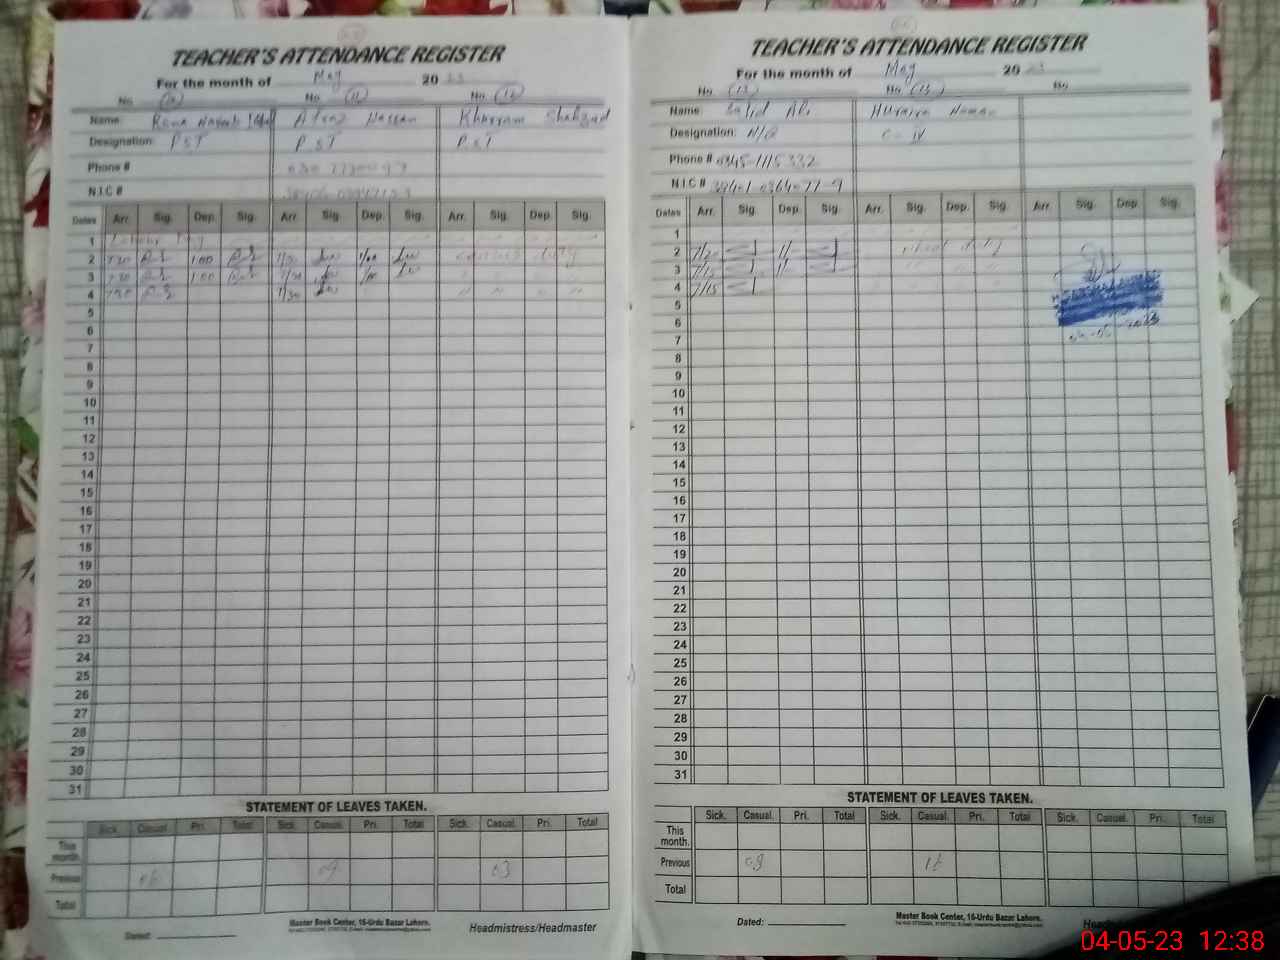 TEACHER'S ATTENDANCE REGISTER
For the month of May 20 23
No. (11) No. (12)
Name: Afraz Hassan Khurram Shahzad
Designation: PST PST PST
Phone #
N.I.C #
Dates Arr. Sig. Dep. Sig. Arr. Sig. Dep. Sig. Arr. Sig. Dep. Sig.
1 Labour Day
2 7/30 1:00 7/30 1/00 duty
3 7/30 1:00 7/30 1/00
4 7/30 7/30
5
6
7
8
9
10
11
12
13
14
15
16
17
18
19
20
21
22
23
24
25
26
27
28
29
30
31
STATEMENT OF LEAVES TAKEN.
Sick. Casual. Pri. Total Sick. Casual. Pri. Total Sick. Casual. Pri. Total
This month.
Previous 06 09 03
Total
Dated:
Master Book Center, 16-Urdu Bazar Lahore.
Headmistress/Headmaster
TEACHER'S ATTENDANCE REGISTER
For the month of May 20 23
No. No. (13) No.
Name: Sajid Ali Huraira Noman
Designation: N/Q C-IV
Phone # 0345-1115332
N.I.C #
Dates Arr. Sig. Dep. Sig. Arr. Sig. Dep. Sig. Arr. Sig. Dep. Sig.
1
2 7/20 1/ duty
3 7/15 1/
4 7/15
5
6
7
8
9
10
11
12
13
14
15
16
17
18
19
20
21
22
23
24
25
26
27
28
29
30
31
04-05-2023
STATEMENT OF LEAVES TAKEN.
Sick. Casual. Pri. Total Sick. Casual. Pri. Total Sick. Casual. Pri. Total
This month.
Previous 08 12
Total
Dated:
Master Book Center, 16-Urdu Bazar Lahore.
04-05-23 12:38